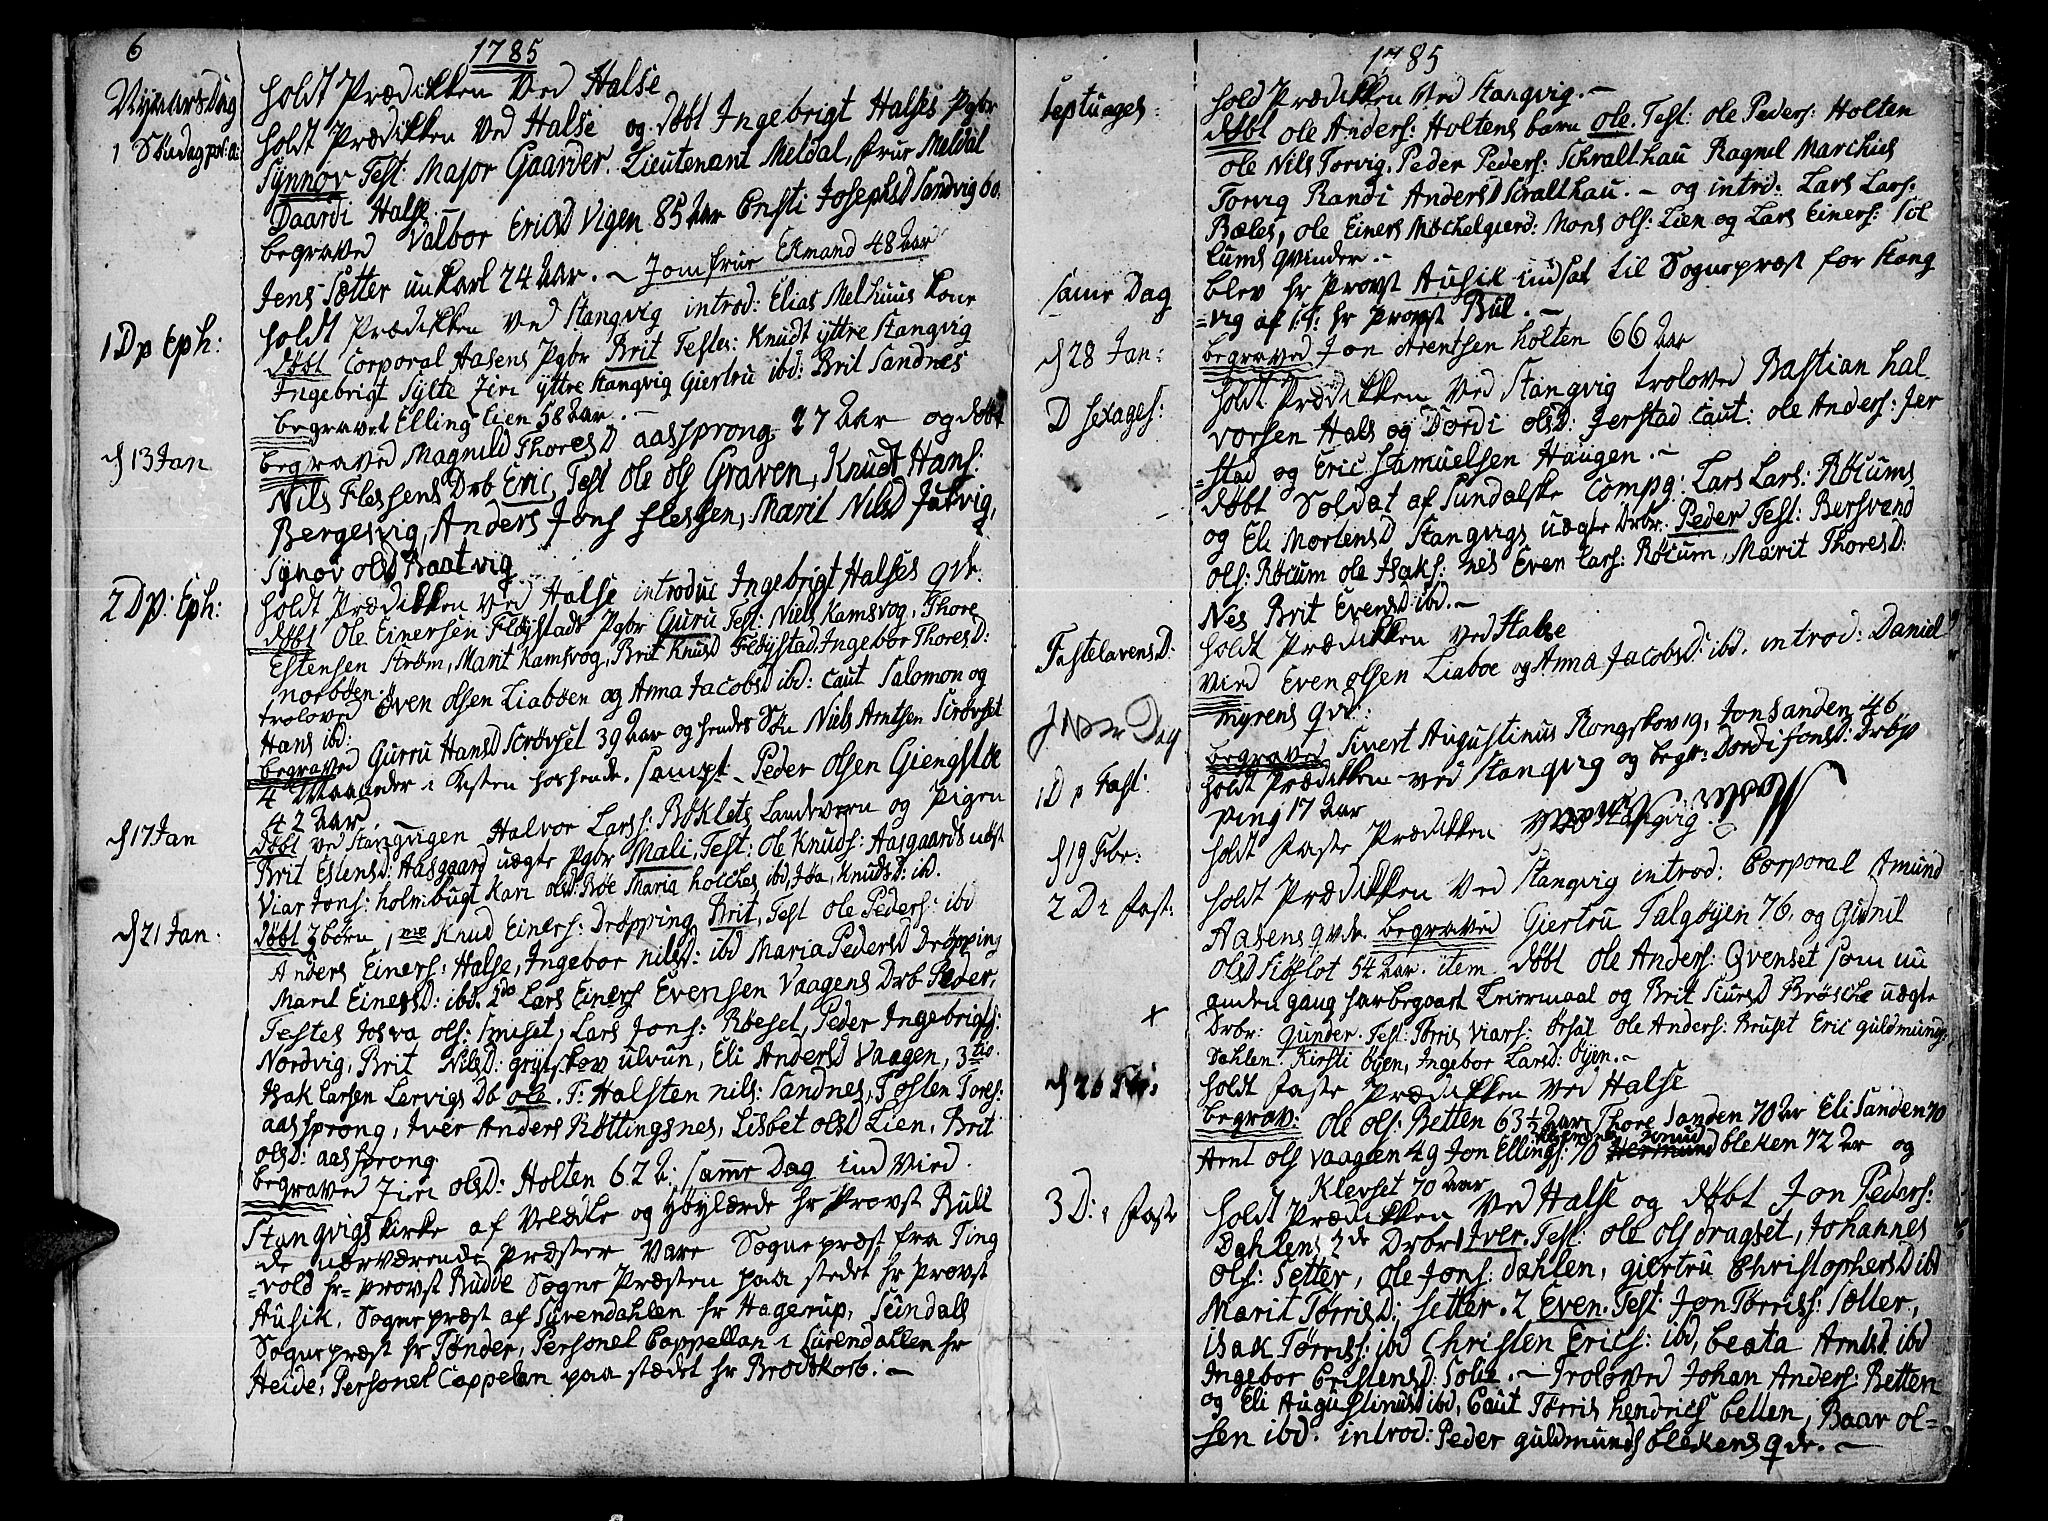 6
1785
Nyaarsdag
holdt Prædikken Ved Halse
1 Søndag p: a:
holdt Prædikken Ved Halse og døbt Ingebrigt Halses Pgbr
Synnøv Test: Major Gaarder, Lieutenant Meldal, frue Meldal
Daardi Halse.
begraved Valbor EricsD Vigen 85 aar Cristi JosephsD Sandvig 60
Jens Sætter unkarl 24 aar. ~ Jomfrue Ekmand 48 aar
1 D p Eph:
holdt Prædikken Ved Stangvig introd: Elias Melhuus kone
døbt Corporal Aasens Pgbr Brit Testes: Knudt yttre Stangvig
Ingebrigt Sylte Ziri yttre Stangvig Giertru ibd: Brit Sandnes
begravet Elling Lien 58 aar. —
d 13 Jan
begraved Magnild ThoresD aassprong 27 aar og døbt
Nils Flessens Drb Eric, Test Ole Ols Graven, Knudt Hans:
Bergesvig, Anders Jons flessen, Marit NilsD Jutvig,
Synøv olsD Baatvig
2 D p: Eph:
holdt Prædikken Ved Halse introduc Ingebrigt Halses qvr.
døbt Ole Einersen Fløystads Pgbr Guru Test: Niels Kamsvog, Thore
Estensen Strøm, Marit Kamsvog, Brit KnudsD Fløystad, Ingebor ThoresD:
norbøen.
troloved Even Olsen Liabøen og Anna JacobsD ibd: caut Salomon og
Hans ibd:
begraved Gurru HansD Scrøvset 39 aar og hendes Søn Niels Arntsen Scrøvset
4 Maaneder i Kisten hos hende. sampt. Peder Olsen Giengstøe
42 aar —
d 17 Jan
døbt ved Stangvigen Halvor Lars: Bøklets Landevern og Pigen
Brit EstensD: Aasgaard uægte Pgbr Mali, Test: Ole Knuds: Aasgaards nøst
Viar Jons: holmbugt Kari olsD Bøe Maria holches ibd, Jøa, KnudsD: ibd.
d 21 Jan.
Døbt 3 børn 1mo Knud Einers: Drøpping Brit, Test Ole Peders: ibd
Anders Einers: Halse, Ingebor nilsD: ibd Maria PedersD Drøpping
Marit EinersD: ibd. 2do Lars Einers Evensen Vaagens Drb Peder,
Testes Josva ols: Smeset, Lars Jons: Røeset, Peder Ingebrigts:
Nordvig, Brit NilsD: Grytskov ulvun, Eli AndersD Vaagen, 3tio.
Isak Larsen Lervigs Db ole. T: Halsten nils: Sandnes, Tosten Tores:
aassprong, Iver Anders Røttingsnes, Lisbet olsD Lien, Brit
olsD: aassprong
begraved Ziri olsD: Holten 62 a: samme Dag ind vied
Stangvigs Kirke af Velædle og Høylærde hr Provst Bull
de nærværende Præster vare Sogne præst fra Ting
=vold hr= provst Budde Sogne Præsten paa stedet hr Provst
Ausik, Sogne præst af Surendahlen hr Hagerup, Sundals
Sogne præst hr Tønder, Personel Cappellan i Surendahlen hr
Heide, Personel Cappelan paa stædet hr Brodtkorb. —
1785
Septuages:
hold Prædikken ved Stangvig. —
døbt ole Anders: Holtens barn ole. Test: ole Peders: Holten
ole Nils Torvig, Peder Peders: Schralthau Ragnil Marchus
Torvig Randi AndersD Scralthau. — og introd: Lars Lars:
Bæles, ole Einers Møchelgierd: Mons ols: Lien og Lars Einers: Søl
lums qvinder. —
samme Dag
blev hr Provst Ausik indsat til Sognepræst for Stang
=vig af S: T: hr provst Bul. —
d 28 Jan:
begraved Jon Arentsen holten 66 aar
D Sexages:
holdt Prædikken Ved Stangvig troloved Bastian hal-
vorsen Hals og Dordi olsD: Jerstad caut: ole Anders: Jer
=stad og Eric Samuelsen Haugen. —
døbt Soldat af Sundalske Compg: Lars Lars: Røcums
og Eli MortensD Stangvigs uægte Drbr. Peder Test: Bersvend
ols: Røcum ole Isaks: nes Even Lars: Røcum, Marit ThoresD:
Nes Brit EvensD ibd. —
FastelavensD:
holdt Prædikken ved Halse
Vied Even olsen Liaboe og Anna JacobsD: ibd. introd: Daniel
myrens qvr:
begraved Sivert Augustinus Rongskov 19, Jon Sanden 46
1 D p Fast:
holdt Prædikken ved Stangvig og begr: Dordi JonsD: Drbp
ping 17 aar
d 19 Febr:
holdt Faste Prædikken ved Stangvig.
2 D i Fast:
holdt Prædikken Ved Stangvig introd: Corporal Amund
Aasens qvdr. begraved Giertru Talgøyen 76, og Gunil
olsD Siøslot 54 aar. item døbt Ole Anders: Qvenset som nu
anden gang har begaaet Leiermaal og Brit SiursD Brøsche uægte
+
Drbr: Gunder. Test: Tørris Viars: ørsal ole Anders: Bruset Eric guldmunds:
dahlen Kirsti øyen, Ingebor LarsD: Øyen. —
d 26 Febr:
holdt faste Prædikken Ved Halse
begrav: ole ols: Betten 63½ aar Thore Sanden 70 ar Eli Sanden 70
Arnt ols Vaagen 49 Jon Ellings: 70 Knud bleken 72 ar og
Klevset 70 aar
3 D: i Faste
holdt Prædikken Ved Halse og døbt Jon Peders:
Dahlens 2de Drbr 1 Iver. Test: ole ols dragset, Johannes
ols: Setter, ole Jons: dahlen, giertru ChristophersD ibd
Marit TørrisD: Setter. 2 Even. Test: Jon Tørriss: Sætter,
isak Tørriss: ibd Christen Erics: ibd, beata ArntsD ibd
Ingebor CristensD: Solie. — Troloved Johan Anders: Betten
og Eli AugustinusD ibd, Caut Tørris hendrics betten, Baar ol=
sen ibd. introd: Peder guldmunds blekens qvdr. —